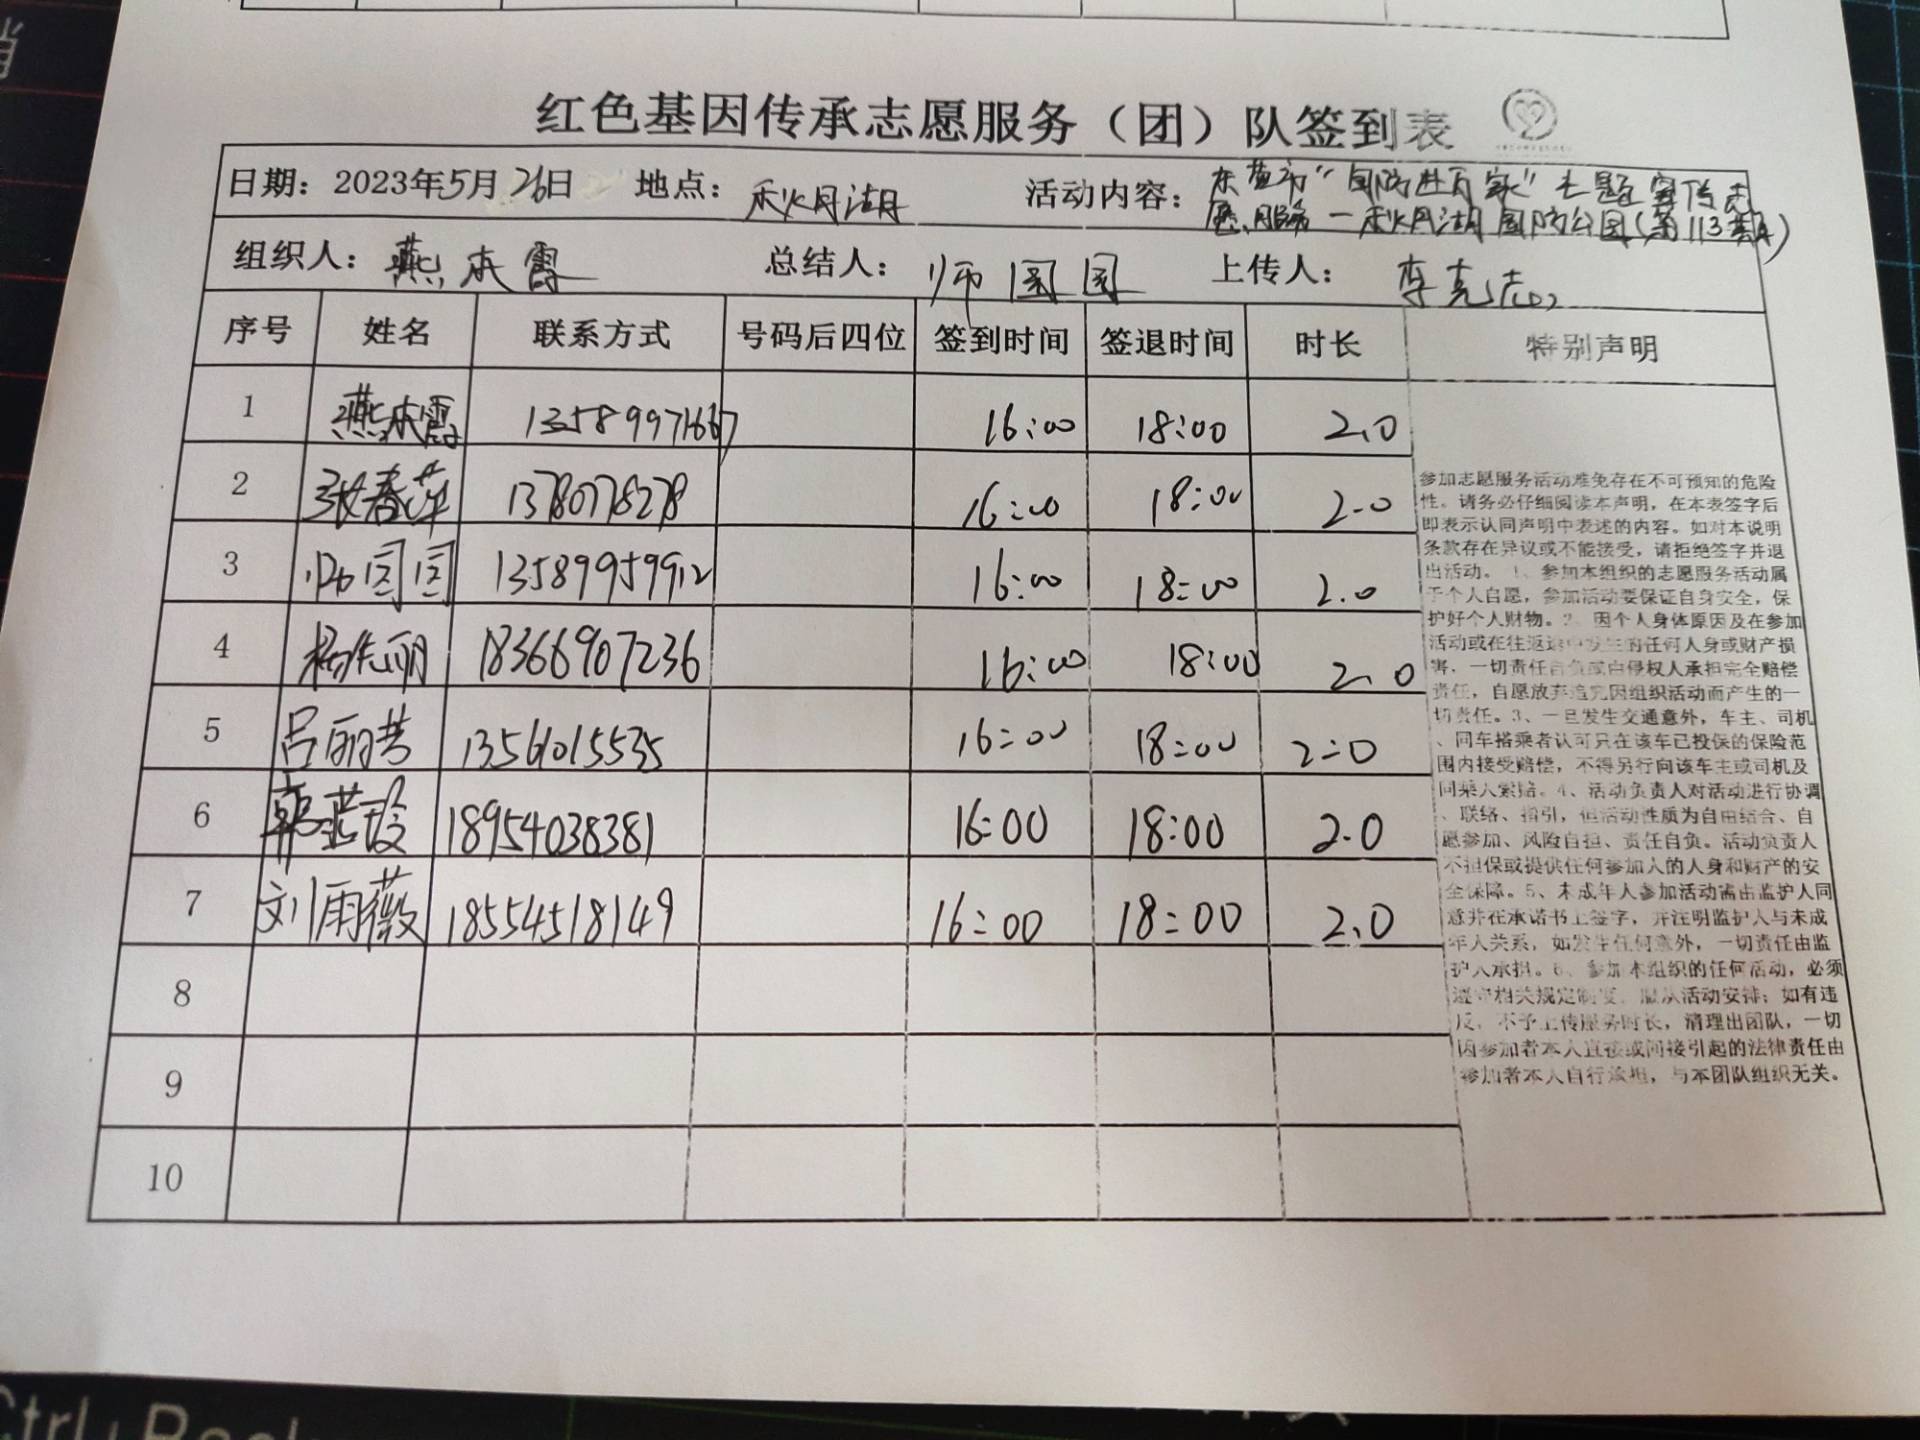 红色基因传承志愿服务（团）队签到表
日期：2023年5月26日 地点：秋月湖 活动内容：东营市“国防进万家”主题宣传志
愿服务—秋月湖国防公园(第113期)
组织人：燕本霞 总结人：师园园 上传人：李克志
序号 姓名 联系方式 号码后四位 签到时间 签退时间 时长 特别声明
1 燕本霞 13589971667 16:00 18:00 2.0
2 张春萍 13780778278 16:00 18:00 2.0
3 师园园 13589959912 16:00 18:00 2.0
4 杨先丽 18366907236 16:00 18:00 2.0
5 吕丽芳 13561015535 16:00 18:00 2.0
6 18954038381 16:00 18:00 2.0
7 刘雨薇 18554518149 16:00 18:00 2.0
8
9
10
参加志愿服务活动难免存在不可预知的危险
性。请务必仔细阅读本声明，在本表签字后
即表示认同声明中表述的内容。如对本说明
条款存在异议或不能接受，请拒绝签字并退
出活动。 1、参加本组织的志愿服务活动属
于个人自愿，参加活动要保证自身安全，保
护好个人财物。2、因个人身体原因及在参加
活动或在往返途中发生的任何人身或财产损
害，一切责任自负或由侵权人承担完全赔偿
责任，自愿放弃追究因组织活动而产生的一
切责任。3、一旦发生交通意外，车主、司机
、同车搭乘者认可只在该车已投保的保险范
围内接受赔偿，不得另行向该车主或司机及
同乘人索赔。4、活动负责人对活动进行协调
、联络、指引，但活动性质为自由结合、自
愿参加、风险自担、责任自负。活动负责人
不担保或提供任何参加人的人身和财产的安
全保障。5、未成年人参加活动需由监护人同
意并在承诺书上签字，并注明监护人与未成
年人关系，如发生任何意外，一切责任由监
护人承担。6、参加本组织的任何活动，必须
遵守相关规定制度，服从活动安排；如有违
反，不予上传服务时长，清理出团队，一切
因参加者本人直接或间接引起的法律责任由
参加者本人自行承担，与本团队组织无关。
Ctrl+Back